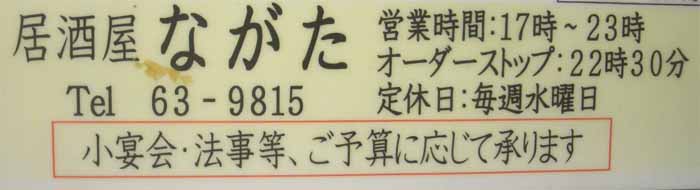 居酒屋 ながた
営業時間:17時~23時
オーダーストップ:22時30分
Tel 63-9815
定休日:毎週水曜日
小宴会・法事等、ご予算に応じて承ります